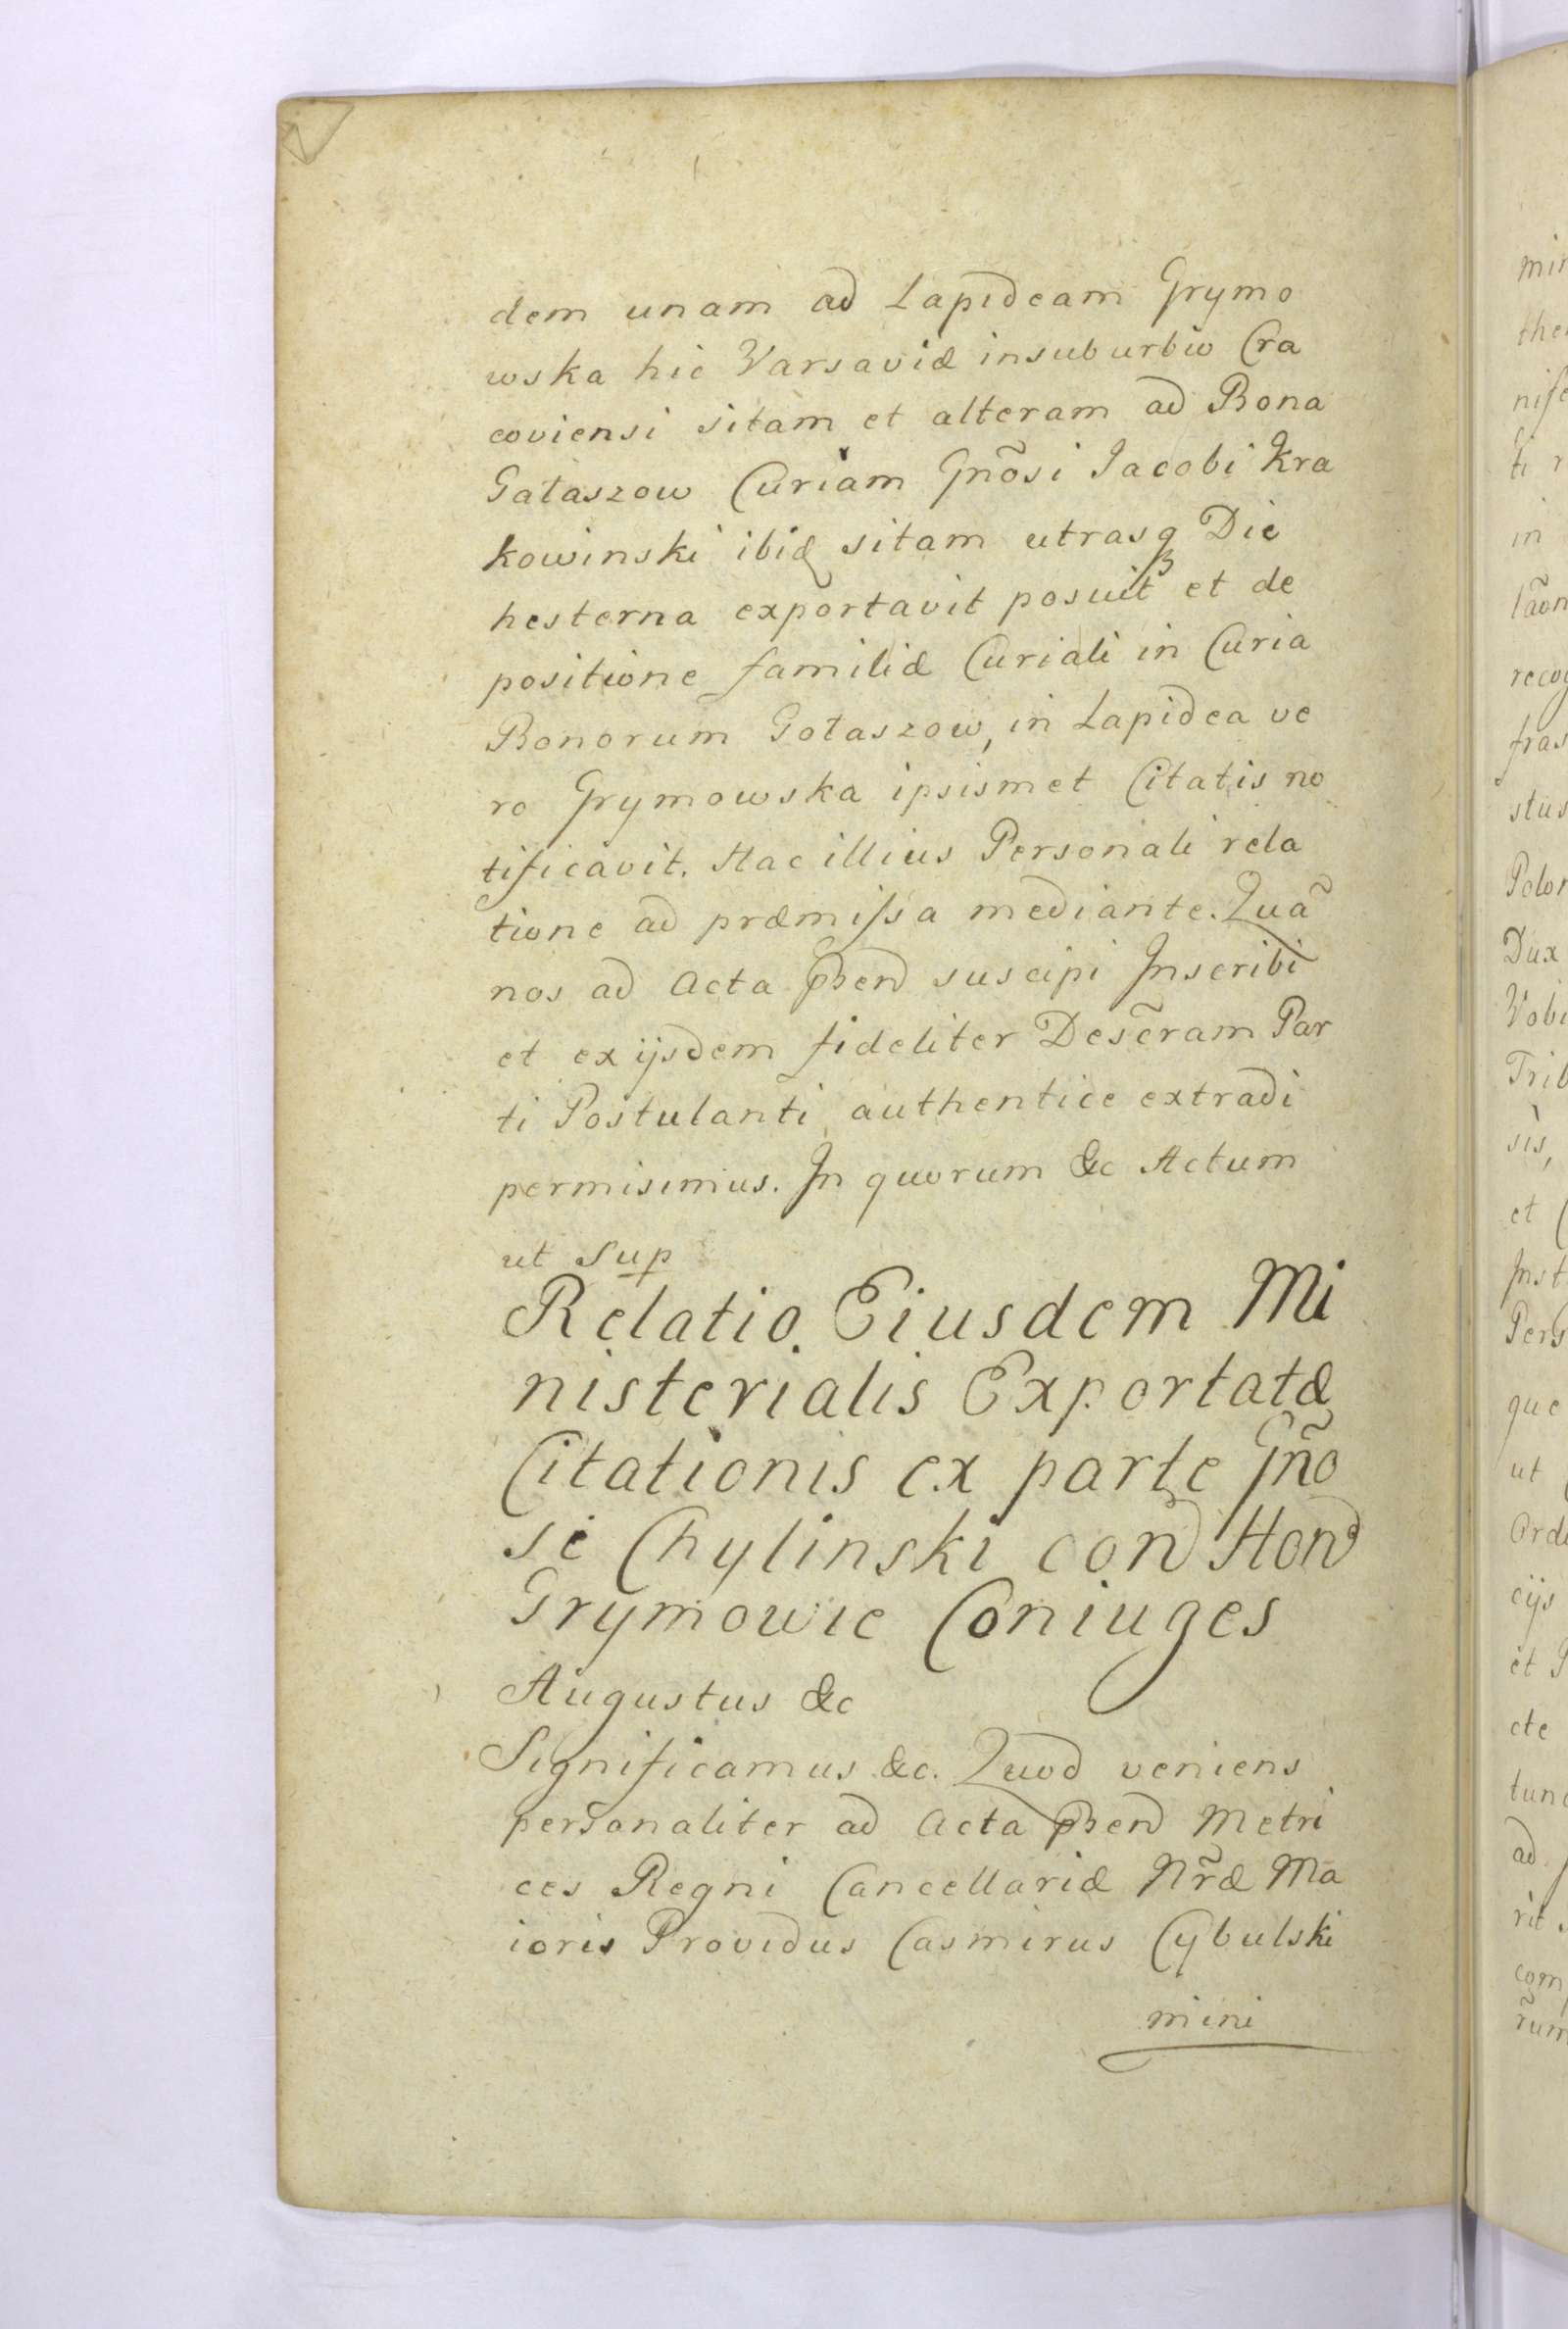 dem unam ad Lapideam Grymo
wska hic Varsaviæ insuburbio Cra
coviensi sitam et alteram ad Bona
Gataszow Curiam Gño͂si Jacobi Kra
kowinski ibid sitam utrasq Die
hesterna exportavit posuit et de
positione familiæ Curiali in Curia
Bonorum Gotaszow, in Lapidea ve
ro Grymowska ipsismet Citatis no
tificavit. Hac illius Personali rela
tione ad præmissa mediante. Quã
nos ad Acta Pñd suscipi Inscribi
et ex ijsdem fideliter Desc̃ram Par
ti Postulanti authentice extradi
permisimus. In quorum &c Actum
ut Sup
Relatio Eiusdem Mi
nisterialis Exportatæ
Citationis ex parte Gño
si Chylinski con Hon
Grymowie Coniuges
Augustus &c
Significamus &c. Quod veniens
personaliter ad Acta Pñd Metri
ces Regni Cancellariæ Nr̃æ Ma
ioris Providus Casmirus Cybulski
mini